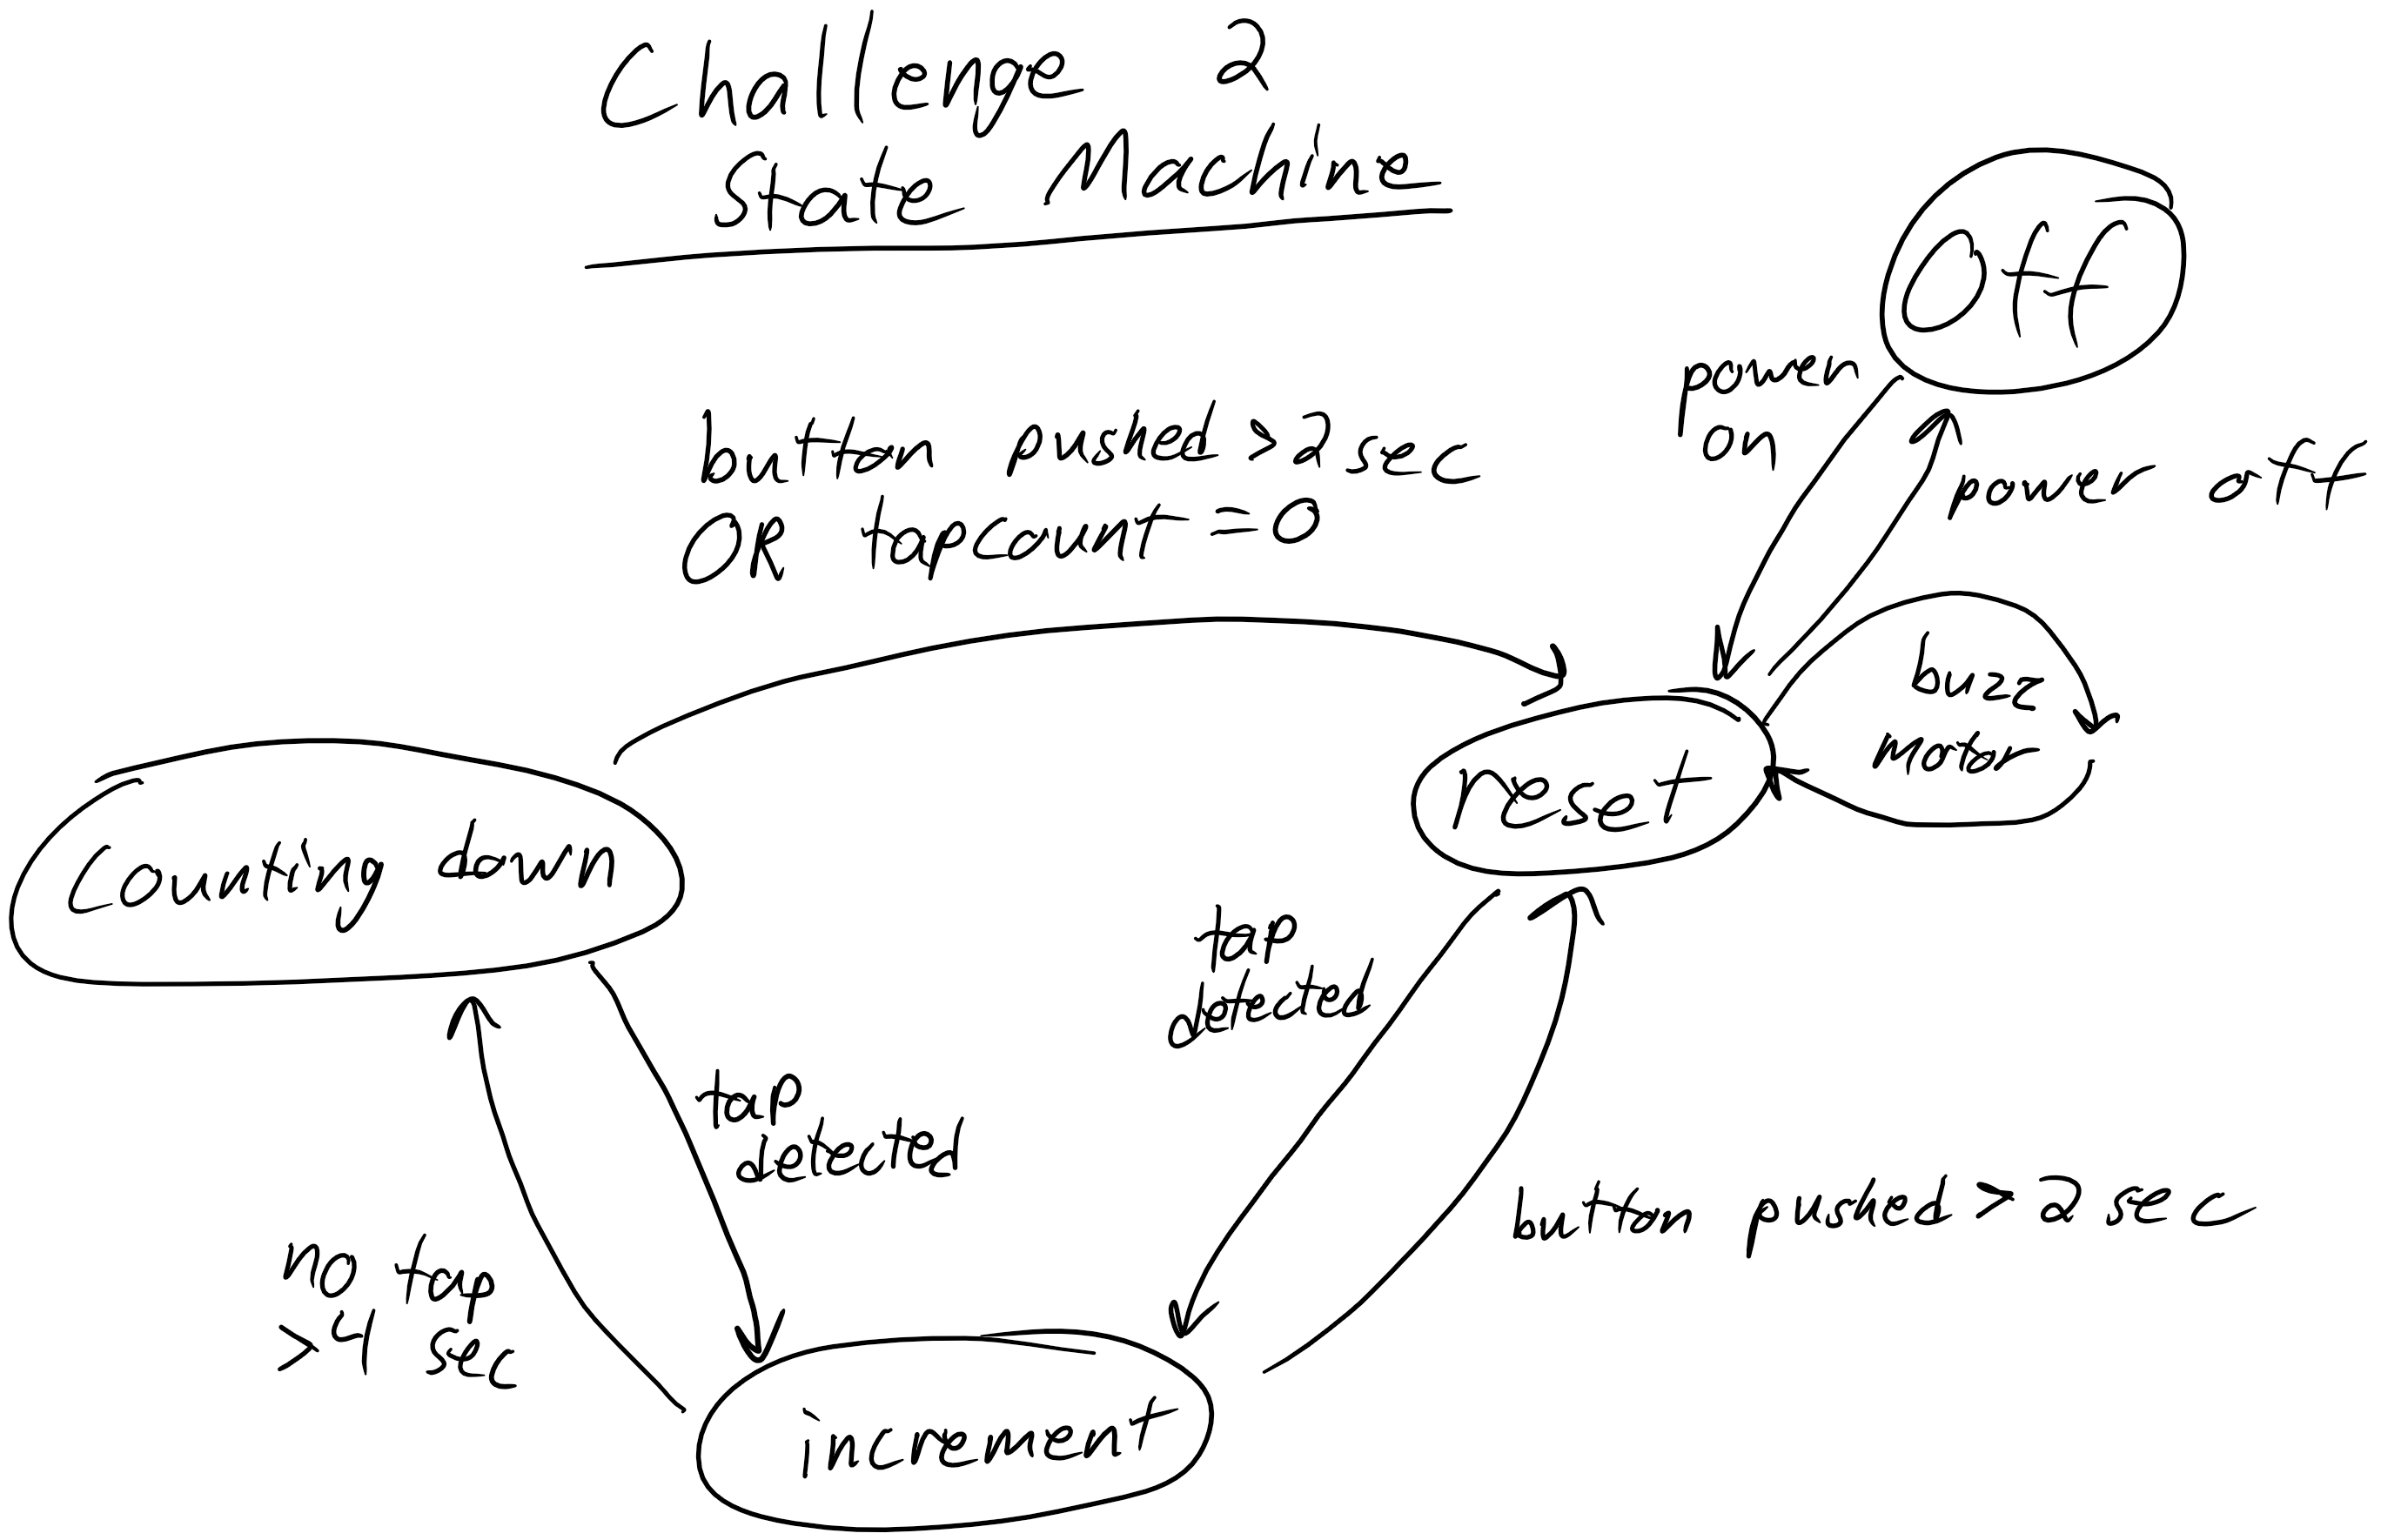 Challenge 2
State Machine
Off
power
on
power off
button pushed >2sec
OR tapcount=0
buzz
motor
reset
Counting down
tap
detected
tap
detected
button pushed > 2 sec
no tap
>4 sec
increment